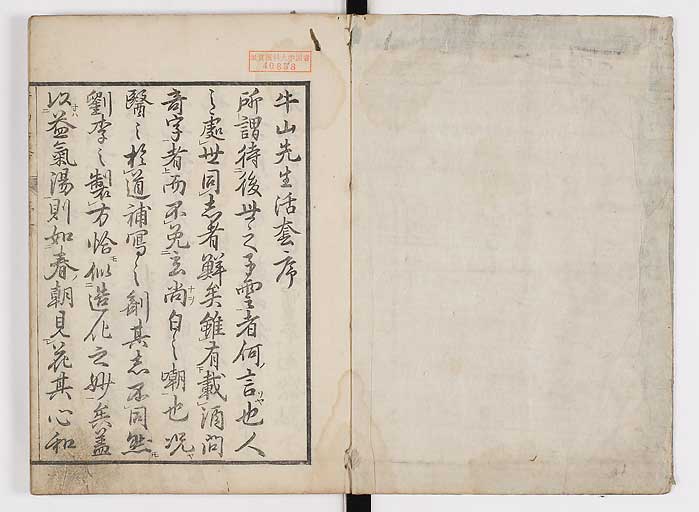 牛山先生活套序
所謂待後世之子雲者何言也人
之處世同志者鮮矣雖有載酒問
奇字者而不免玄尚白之嘲也况
醫之於道補寫之劑其志不同然
劉李之製方恰似造化之妙矣蓋
以益氣湯則如春朝見花其心和
40858